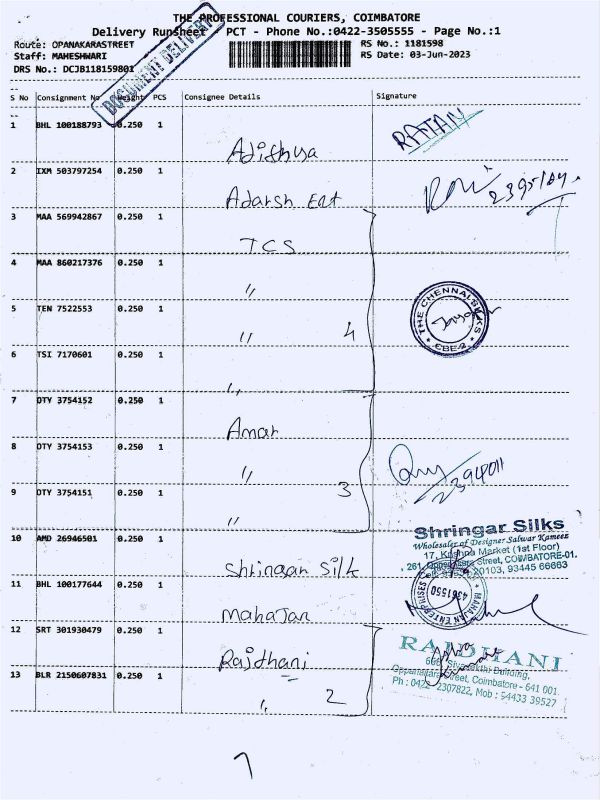 THE PROFESSIONAL COURIERS, COIMBATORE
Delivery Runsheet PCT - Phone No.:0422-3505555 - Page No.:1
Route: OPANAKARASTREET
RS No.: 1181598
Staff: MAHESHWARI
RS Date: 03-Jun-2023
DRS No.: DCJB118159801
DOCUMENT DELIVERY
S No Consignment No Weight PCS Consignee Details Signature
1 BHL 100188793 0.250 1 Adithya RATAN
2 IXM 503797254 0.250 1 Adarsh Ent
3 MAA 569942867 0.250 1 TCS
4 MAA 860217376 0.250 1 "
THE CHENNAI SILKS
CBE-2
5 TEN 7522553 0.250 1 " 4
6 TSI 7170601 0.250 1 "
7 OTY 3754152 0.250 1 Amar
8 OTY 3754153 0.250 1 "
2394011
9 OTY 3754151 0.250 1 " 3
10 AMD 26946501 0.250 1 Shringar Silk
Shringar Silks
Wholesaler of Designer Salwar Kameez
17, Krishna Market (1st Floor)
261, Oppanakara Street, COIMBATORE-01.
20103, 93445 66663
11 BHL 100177644 0.250 1 Mahajan
MAHAJAN ENTERPRISES
4361550
12 SRT 301930479 0.250 1 Rajdhani
RAJDHANI
Sivasakthi Building,
Oppanakara Street, Coimbatore - 641 001
Ph : 0422 - 2307822, Mob : 94433 39527
13 BLR 2150607831 0.250 1 " 2
7